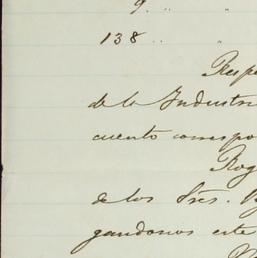 9. " "
138 .. "
Resp
de la Industri
cuento correspo
Rog
de los Srês. B
gandonos este